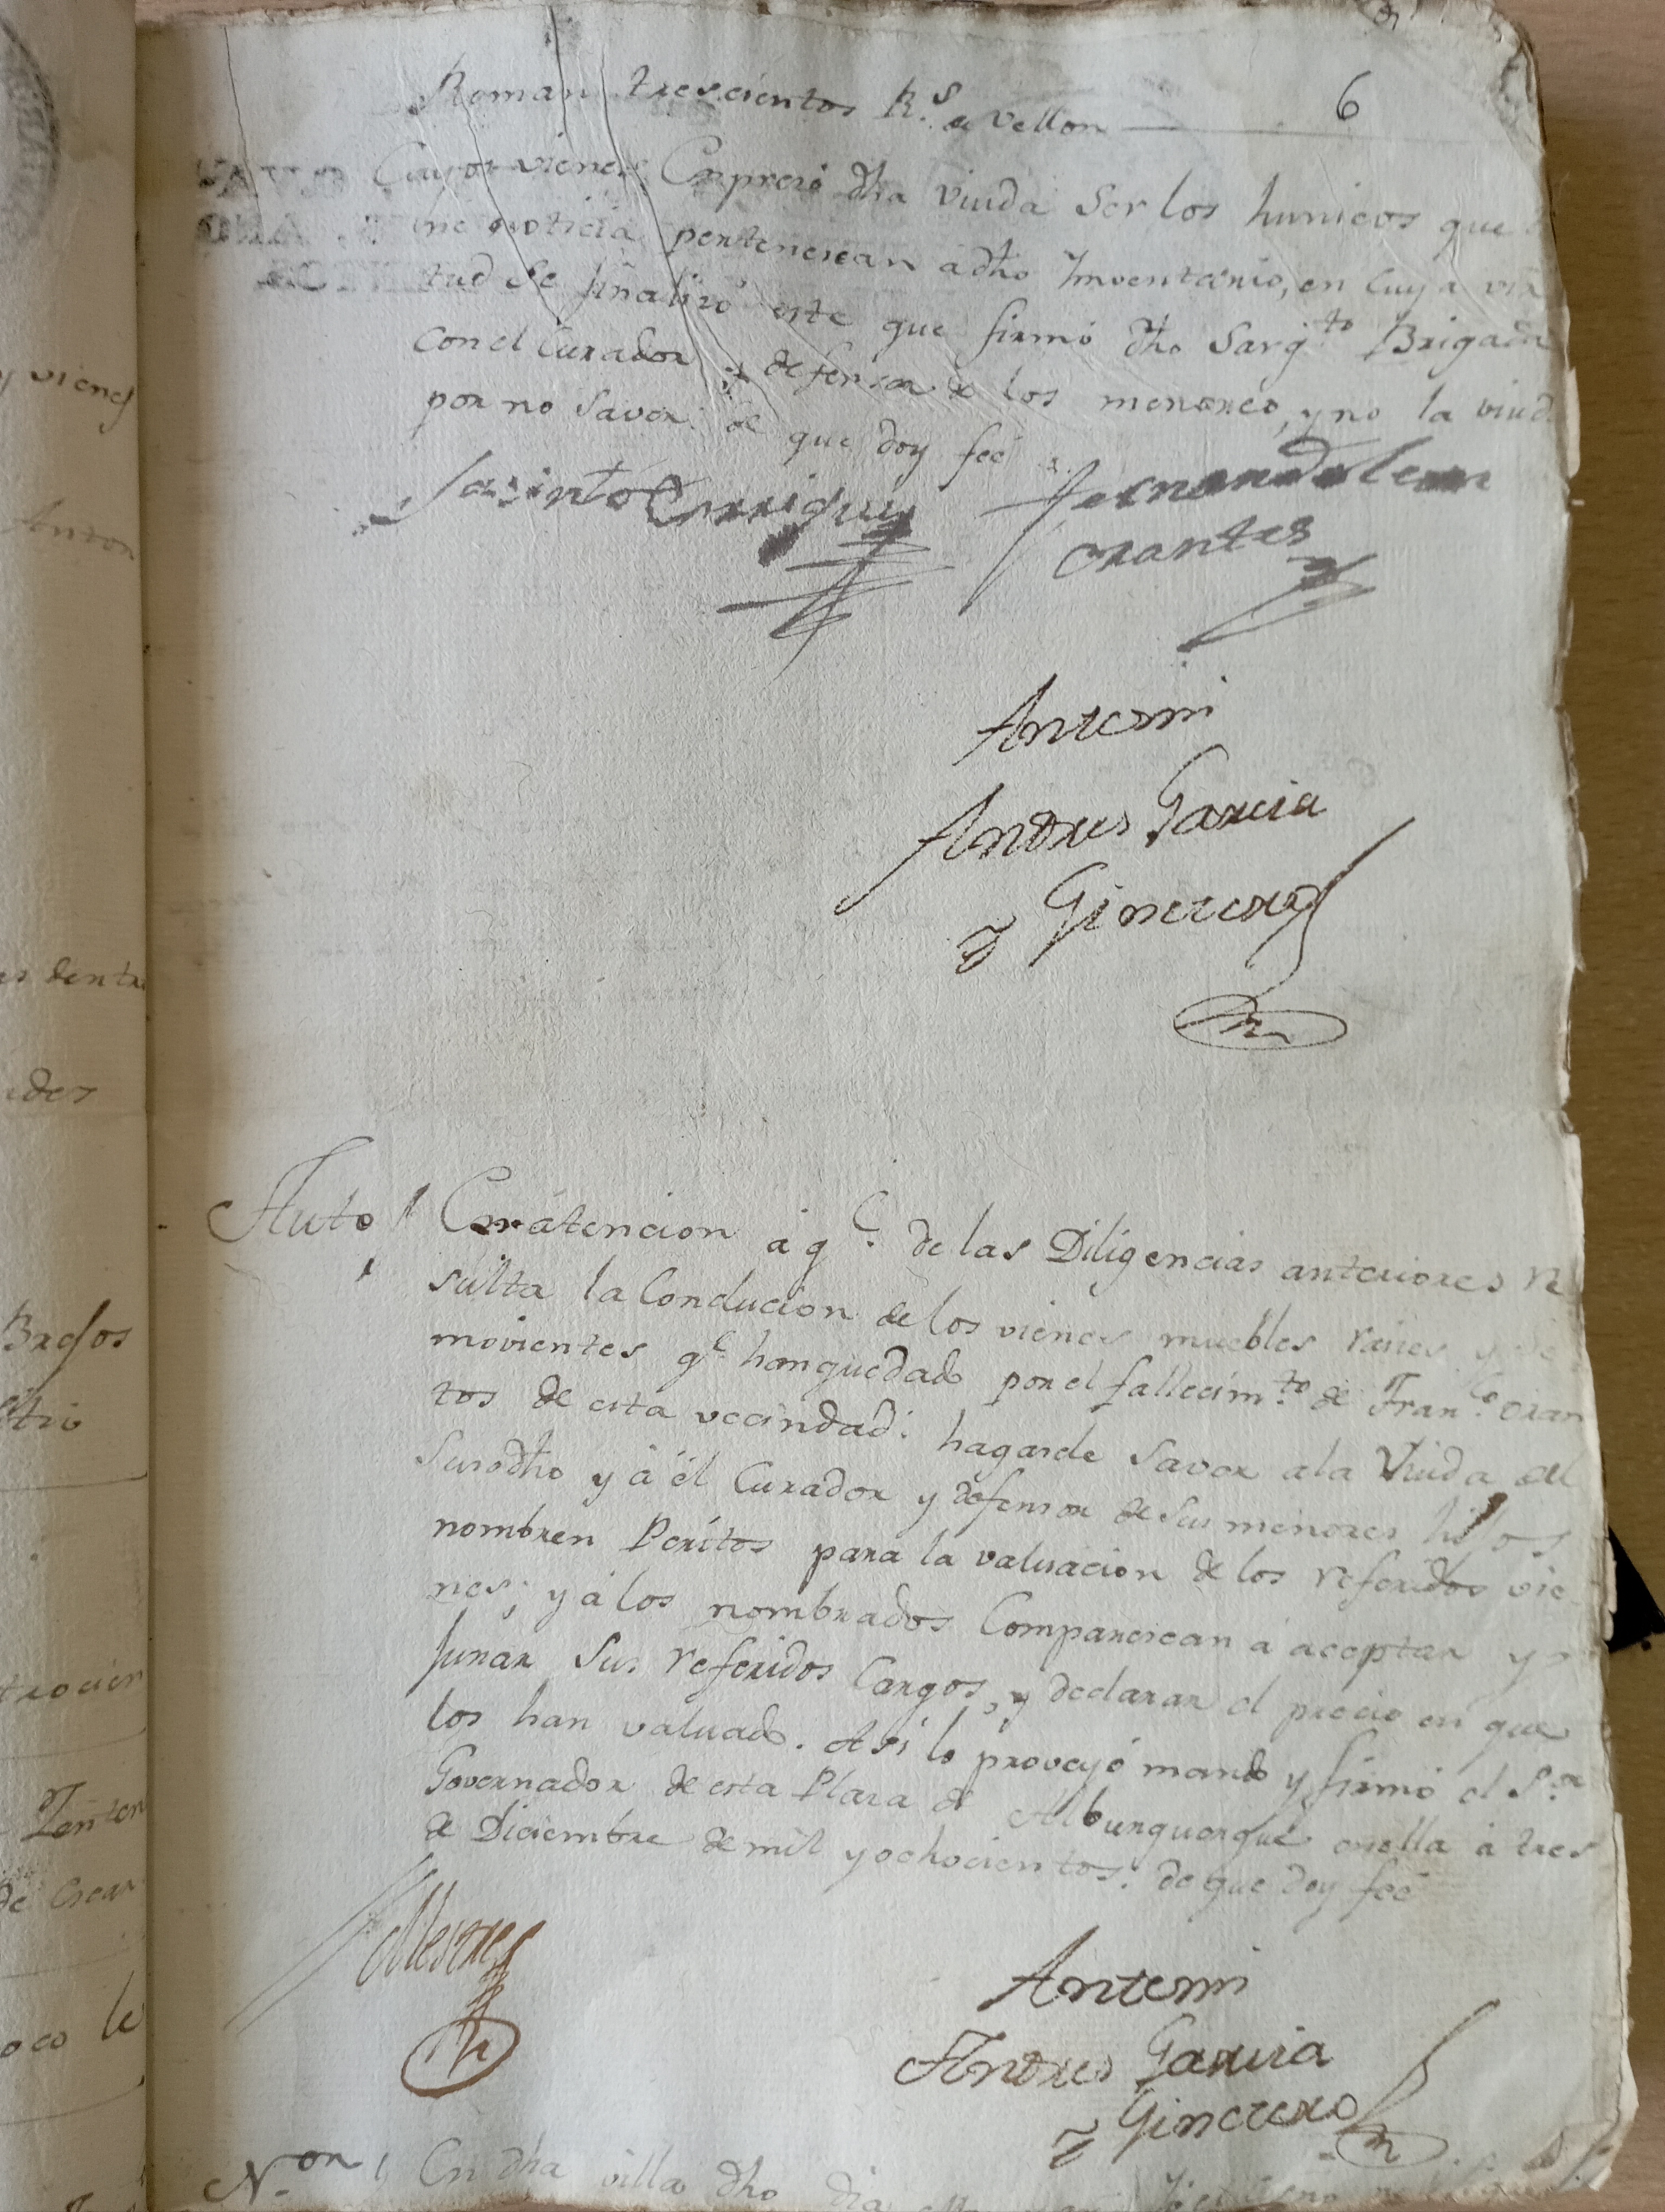 6
Roman trescientos R.s de vellon
Cuyos vienes Expresó dha viuda Ser los hunicos que
ne noticia pertenescan adho Imventario, en cuya vir
tud Se finalizó este que firmó dho Sarg.to Brigada
con el Curador y defensor de los menores, y no la viuda
por no Saver: de que doy feé
Jasinto Enrriquez Fernando lem
orantes
Antemi
Andres Garcia
y Ginerero
Auto En átencion a q.e de las Diligencias anteriores re
sulta la Conducion de los vienes muebles raices y
movientes q.e han quedado por el fallecim.to de Fran.co oran
tos de esta vecindad: hagasele Saver ala Viuda del
Susodho y á él Curador y defensor de Sus menores hijos
nombren Peritos para la valuacion de los referidos vie
nes; y á los nombrados Comparescan á aceptar y
jurar Sus referidos Cargos, y declarar el precio en que
los han valuado. Asi lo proveyó mando y firmó el S.or
Governador de esta Plaza de Alburquerque en ella á tres
de Diciembre de mil y ochocientos: de que doy feé
Mestre
Antemi
Andres Garcia
y Ginerero
N.on En dha villa dho dia
y vienes
Anton
es dentro
ades
trocien
de
oco le